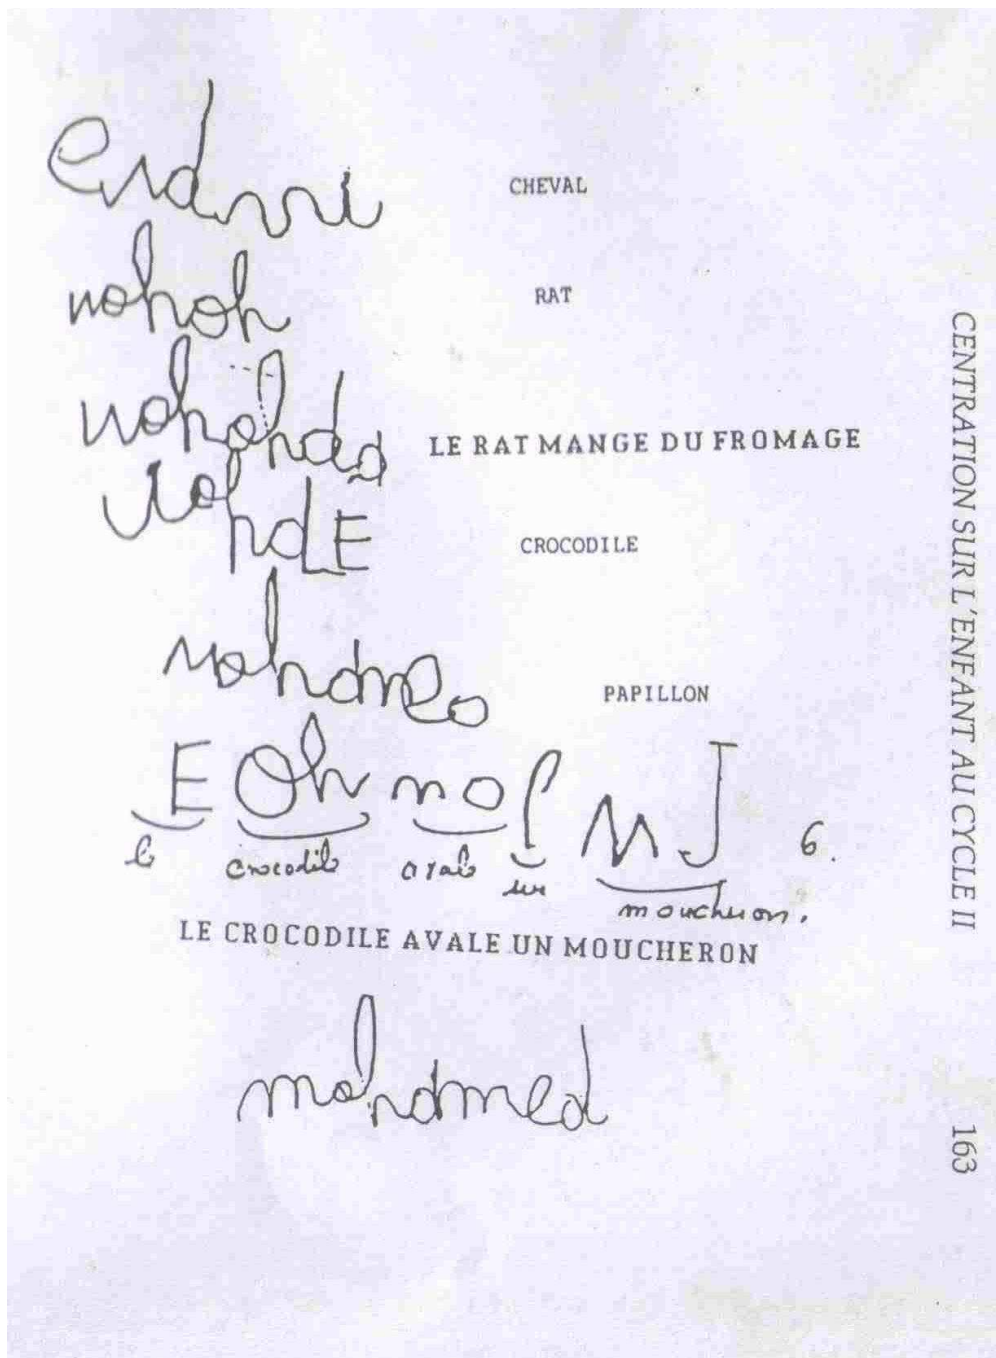 erdmi
CHEVAL
nohoh
RAT
LE RAT MANGE DU FROMAGE
hdLE
CROCODILE
PAPILLON
E Oh no l M J 6.
le crocodile avale un moucheron.
LE CROCODILE AVALE UN MOUCHERON
mohamed
CENTRATION SUR L'ENFANT AU CYCLE II 163